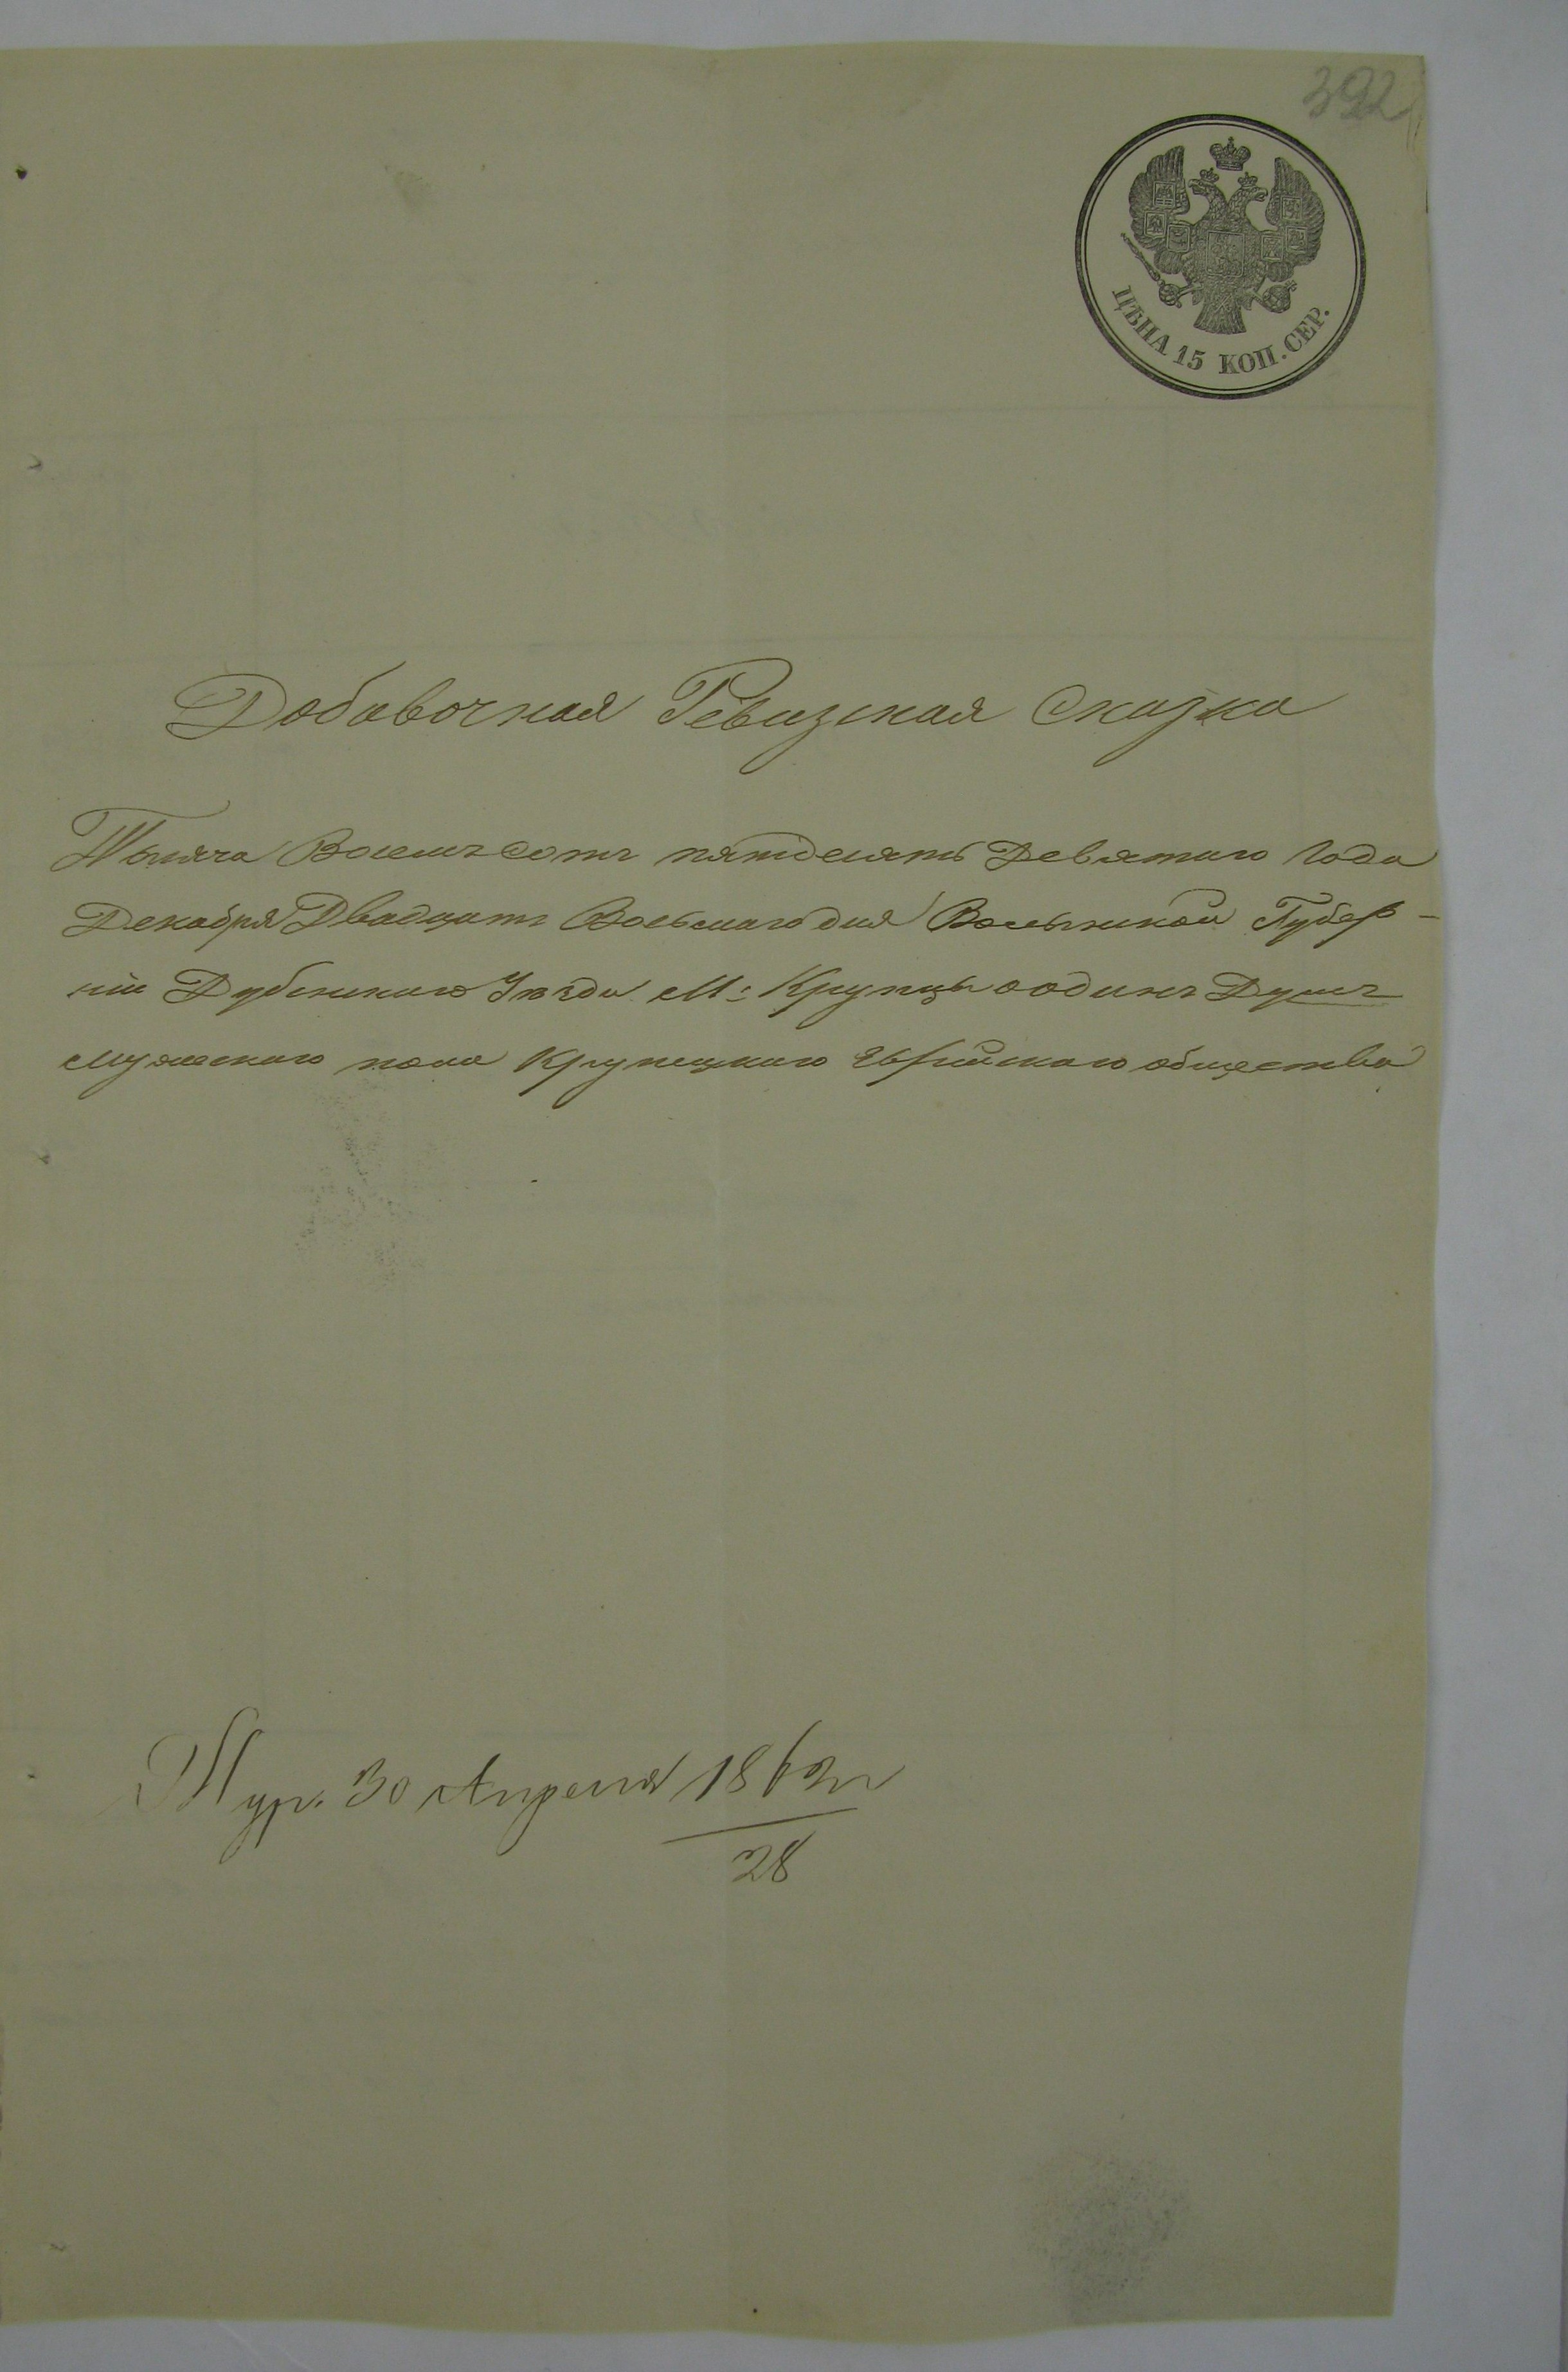 392
ЦѢНА 15 КОП. СЕР.
Добавочная Ревизская Сказка
Тысяча Восемъ сотъ пятдесятъ Девятаго Года
Декабря Двадцать Восьмаго дня Волынской Губер-
ніи Дубенскаго Уѣзда М: Крупцы о одинъ Душъ
мужескаго пола Крупецкаго Еврейскаго общества
30 Апреля 1863 г
28